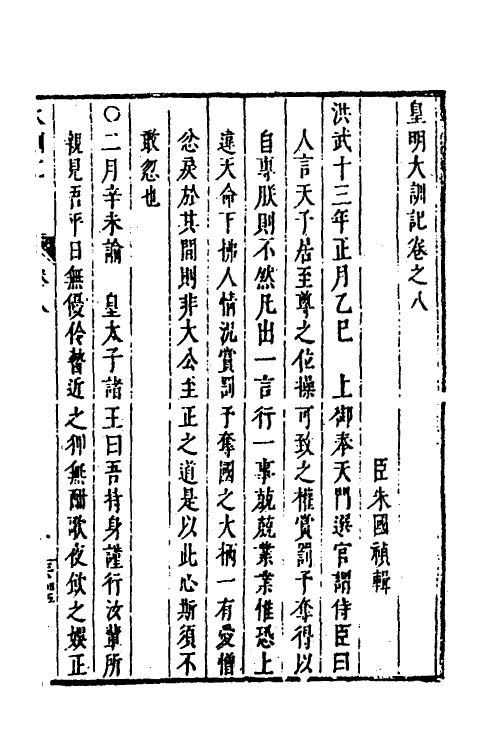 皇明大訓記卷之八
臣朱國禎輯
洪武十三年正月乙巳　上御奉天門選官謂侍臣曰
人言天子居至尊之位操可致之權賞罰予奪得以
自專朕則不然凡出一言行一事兢兢業業惟恐上
違天命下拂人情況賞罰予奪國之大柄一有愛憎
忿戾於其間則非大公至正之道是以此心斯須不
敢忽也
○二月辛未諭　皇太子諸王曰吾持身謹行汝輩所
親見吾平日無優伶瞽近之狎無酣歌夜飲之娛正
卷八